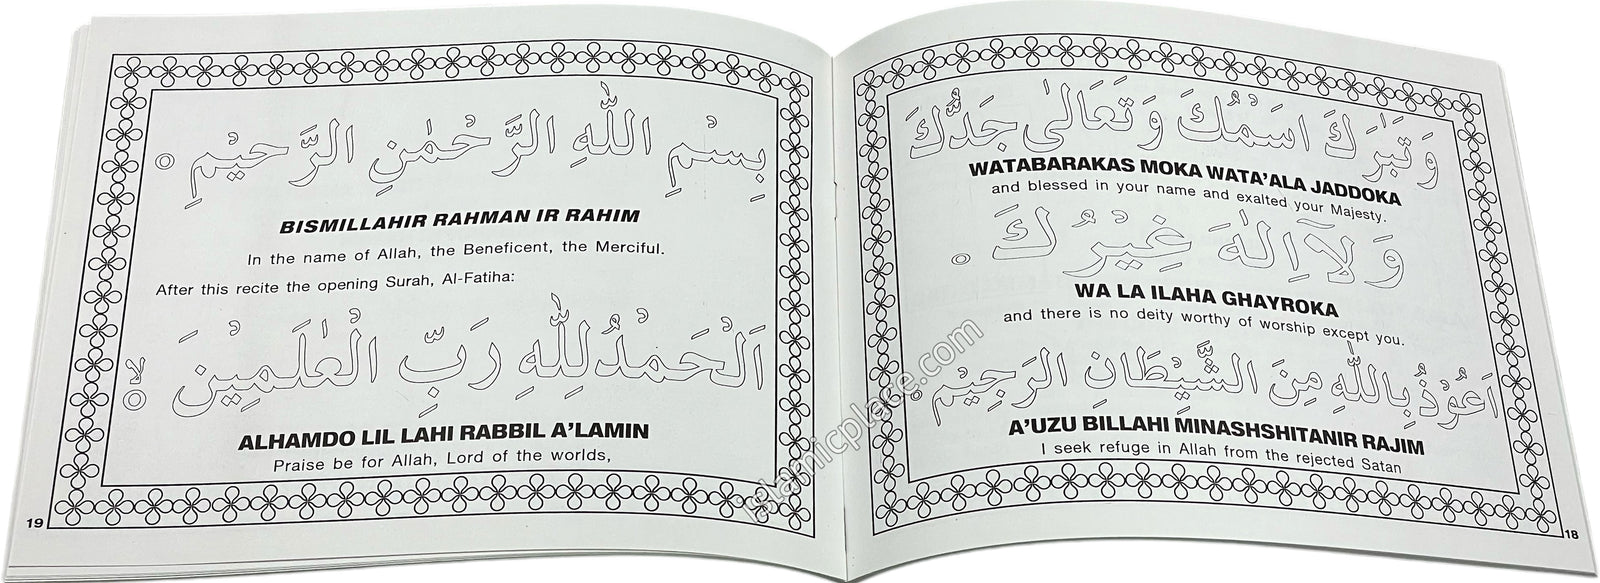 وَتَبَرَكَ اسْمُكَ وَتَعَالٰی جَدُّكَ
WATABARAKAS MOKA WATA'ALA JADDOKA
and blessed in your name and exalted your Majesty.
وَلَآ اِلٰهَ غَيْرُكَ
WA LA ILAHA GHAYROKA
and there is no deity worthy of worship except you.
اَعُوْذُ بِاللّٰهِ مِنَ الشَّيْطَانِ الرَجِيْمِ
A'UZU BILLAHI MINASHSHITANIR RAJIM
I seek refuge in Allah from the rejected Satan
18
بِسْمِ اللّٰهِ الرَّحْمٰنِ الرَّحِيْمِ
BISMILLAHIR RAHMAN IR RAHIM
In the name of Allah, the Beneficent, the Merciful.
After this recite the opening Surah, Al-Fatiha:
اَلْحَمْدُ لِلّٰهِ رَبِّ الْعٰلَمِيْنَ لا
ALHAMDO LIL LAHI RABBIL A'LAMIN
Praise be for Allah, Lord of the worlds,
19
islamicplace.com